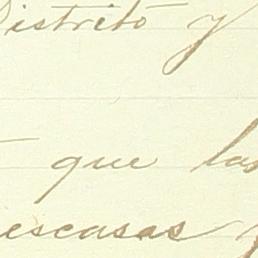 Distrito y
que las
escasas